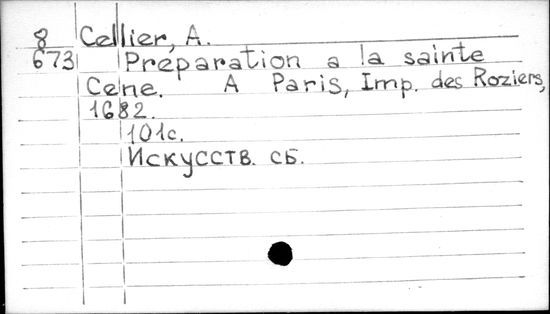 8 Cellier, A.
673 Preparation a la sainte
Cene. A Paris, Imp. des Roziers,
1682.
101c.
Искусств. сб.